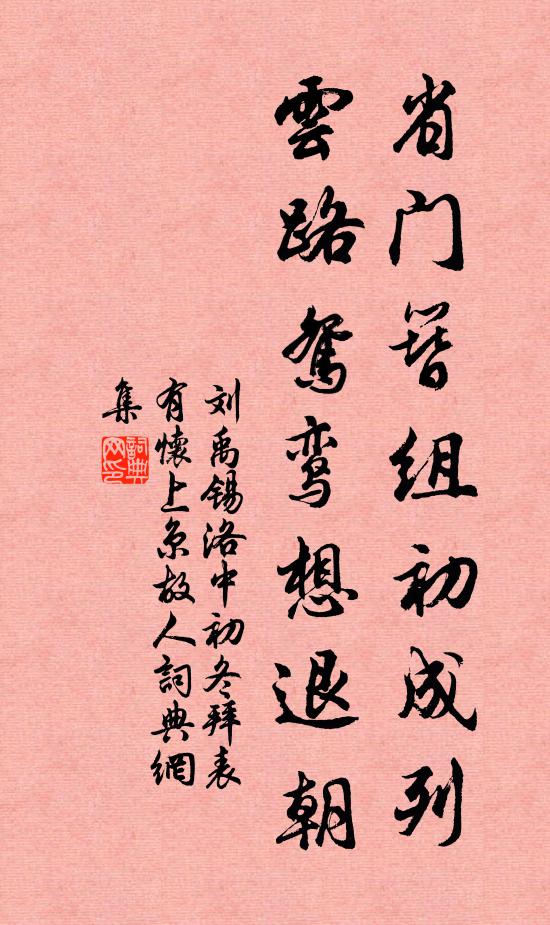 省门簪组初成列
雲路鸳鸾想退朝
刘禹锡洛中初冬拜表
有懷上京故人詞典網
集
詞典
网印